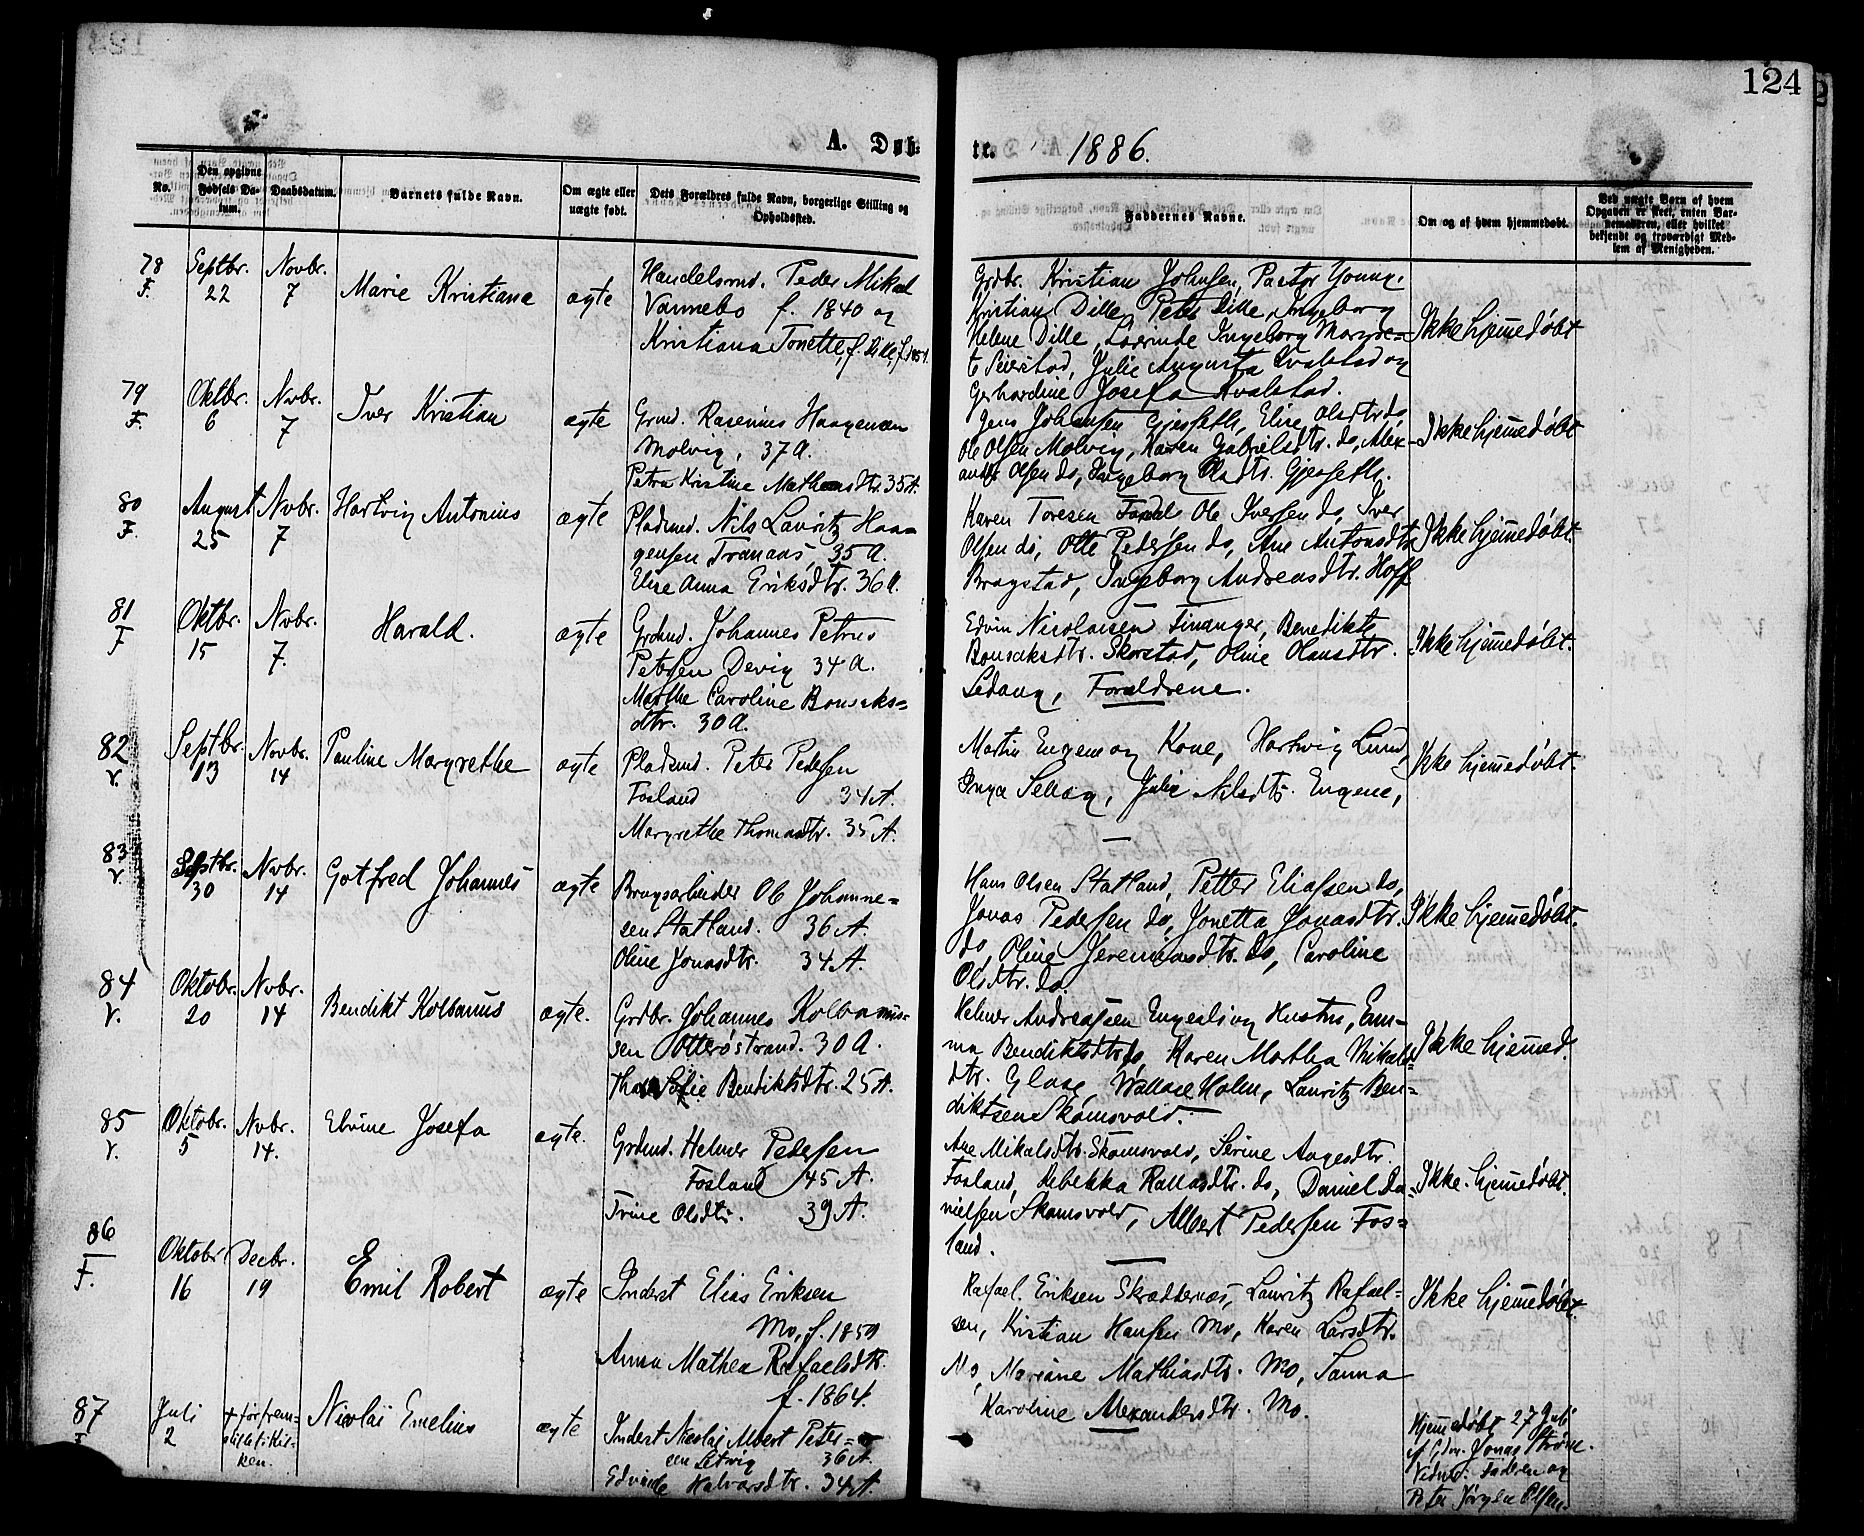 124
A. Døbte. 1886.
No.
Den opgivne Fødsels Datum.
Daabsdatum.
Barnets fulde Navn.
Om ægte eller uægte født.
Dets Forældres fulde Navn, borgerlige Stilling og Opholdssted.
Faddernes Navne.
Om og af hvem hjemmedøbt.
Ved uægte Børn af hvem Opgaven er skeet, enten Barnemoderen, eller hvilket bekjendt og troværdigt Medlem af Menigheden.
78 F. Septbr. 22 Novbr. 7 Marie Kristiane ægte
Handelsmd. Peder Mikal
Vannebo f. 1840 og
Kristiana Tonette, f. Dille, f. 1851.
Grdbr. Kristian Johnsen, Pastor Younge.
Kristian Dille, Peter Dille, Ingeborg
Helene Dille, Lovinde Ingeborg Margre=
te Seierstad, Julie Augusta Kvalstad og
Gerhardine Josefa Kvalstad.
Ikke hjemmedøbt
79 F. Oktbr. 6 Nvbr. 7 Iver Kristian ægte
Grmd. Rasenius Haagensen
Molvig, 37 A.
Petra Kristine Matheasdtr. 35 A.
Jens Johansen Gjesseth, Eline Olsdtr do,
Ole Olsen Molvig, Karen Gabrielsdtr. do, Alex=
ander Olsen do, Ingeborg Olsdtr. Gjesseth.
Ikke hjemmedøbt
80 F. August 25 Nvbr. 7 Hartvig Antonius ægte
Pladsmd. Nils Lavritz Haa=
gensen Tranaas, 35 A.
Else Anna Eriksdtr. 36 A.
Karen Toresen Fosnes Ole Iversen do, Iver
Olsen do, Otte Pedersen do, Ane Antonsdtr.
Bragstad, Ingeborg Andreasdtr. Hoff
Ikke hjemmedøbt.
81 F Oktbr. 15 Nvbr. 7. Harald. ægte
Grdmd. Johannes Petrus
Petersen Devig 34 A.
Marthe Caroline Bonsaks=
dtr. 30 A.
Edvin Nicolaisen Finanger, Benedikte
Bonsaksdtr. Skorstad, Oline Olausdtr.
Sedang, Forældrene.
Ikke hjemmedøbt.
82 V. Septbr. 13 Novbr. 14 Pauline Margrethe ægte
Pladsmd. Peter Pedersen
Fosland 34 A.
Margrethe Thomasdtr. 35 A.
Martin Engen og Kone, Hartvig Lund,
Inga Selvaag, Julie Nilsdtr. Engene,
Ikke hjemmedøbt.
83 V. Septbr. 30 Nvbr. 14 Gotfred Johannes ægte
Brugsarbeider Ole Johanne=
sen Statland. 36 A.
Oline Jonasdtr. 34 A.
Hans Olsen Statland, Petter Eliassen do,
Jonas Pedersen do, Jonetta Jonasdtr.
do, Oline Jeremiasdtr. do, Caroline
Olsdtr. do.
Ikke hjemmedøbt.
84 V. Oktobr. 20 Nvbr. 14 Bendikt Kolbanus ægte.
Grdbr. Johannes Kolbanus=
sen Otterøstrand. 30 A.
Sofie Bendiktsdtr. 25 A.
Helmer Andreassen Engesli og Hustru, Em=
ma Bendiktsdtr do, Karen Martha Mikals=
dtr. Glase, Wallace Holm, Lauritz Ben=
diktsen Skomsvold.
Ikke hjemmed.
85 V. Oktobr. 5 Nvbr. 14. Elvine Josefa ægte.
Grdmd. Helmer Pedersen
Fosland 45 A.
Trine Olsdtr. 39 A.
Ane Mikalsdtr. Skomsvold, Serine Aagesdtr.
Fosland, Rebekka Rallasdtr. do, Daniel Da=
nielsen Skomsvold, Albert Pedersen Fos=
land.
Ikke hjemmedøbt.
86 F. Oktobr 16 Decbr. 19 Emil Robert ægte
Inderst Elias Eriksen
Mo, f. 1859
Anna Mathea Rafaelsdtr.
f. 1864.
Rafael Eriksen Skrædderneset, Lauritz Rafael=
sen, Kristian Hansen Mo, Karen Larsdtr.
Mo, Mariane Mathiasdtr. Mo, Sanna
Karoline Alexandersdtr. Mo.
Ikke hjemmedøbt.
87 Juli 2 + før frem=
stillet i Kir=
ken. Nicolai Emelius ægte
Inderst Nicolai Albert Peter=
sen Setvig 36 A.
Edvarde Halvorsdtr. 34 A.
Hjemmedøbt 27 Juli
af Gdm. Jonas Strøm.
Vidner: Faderen og
Peter Jørgen Olsen.